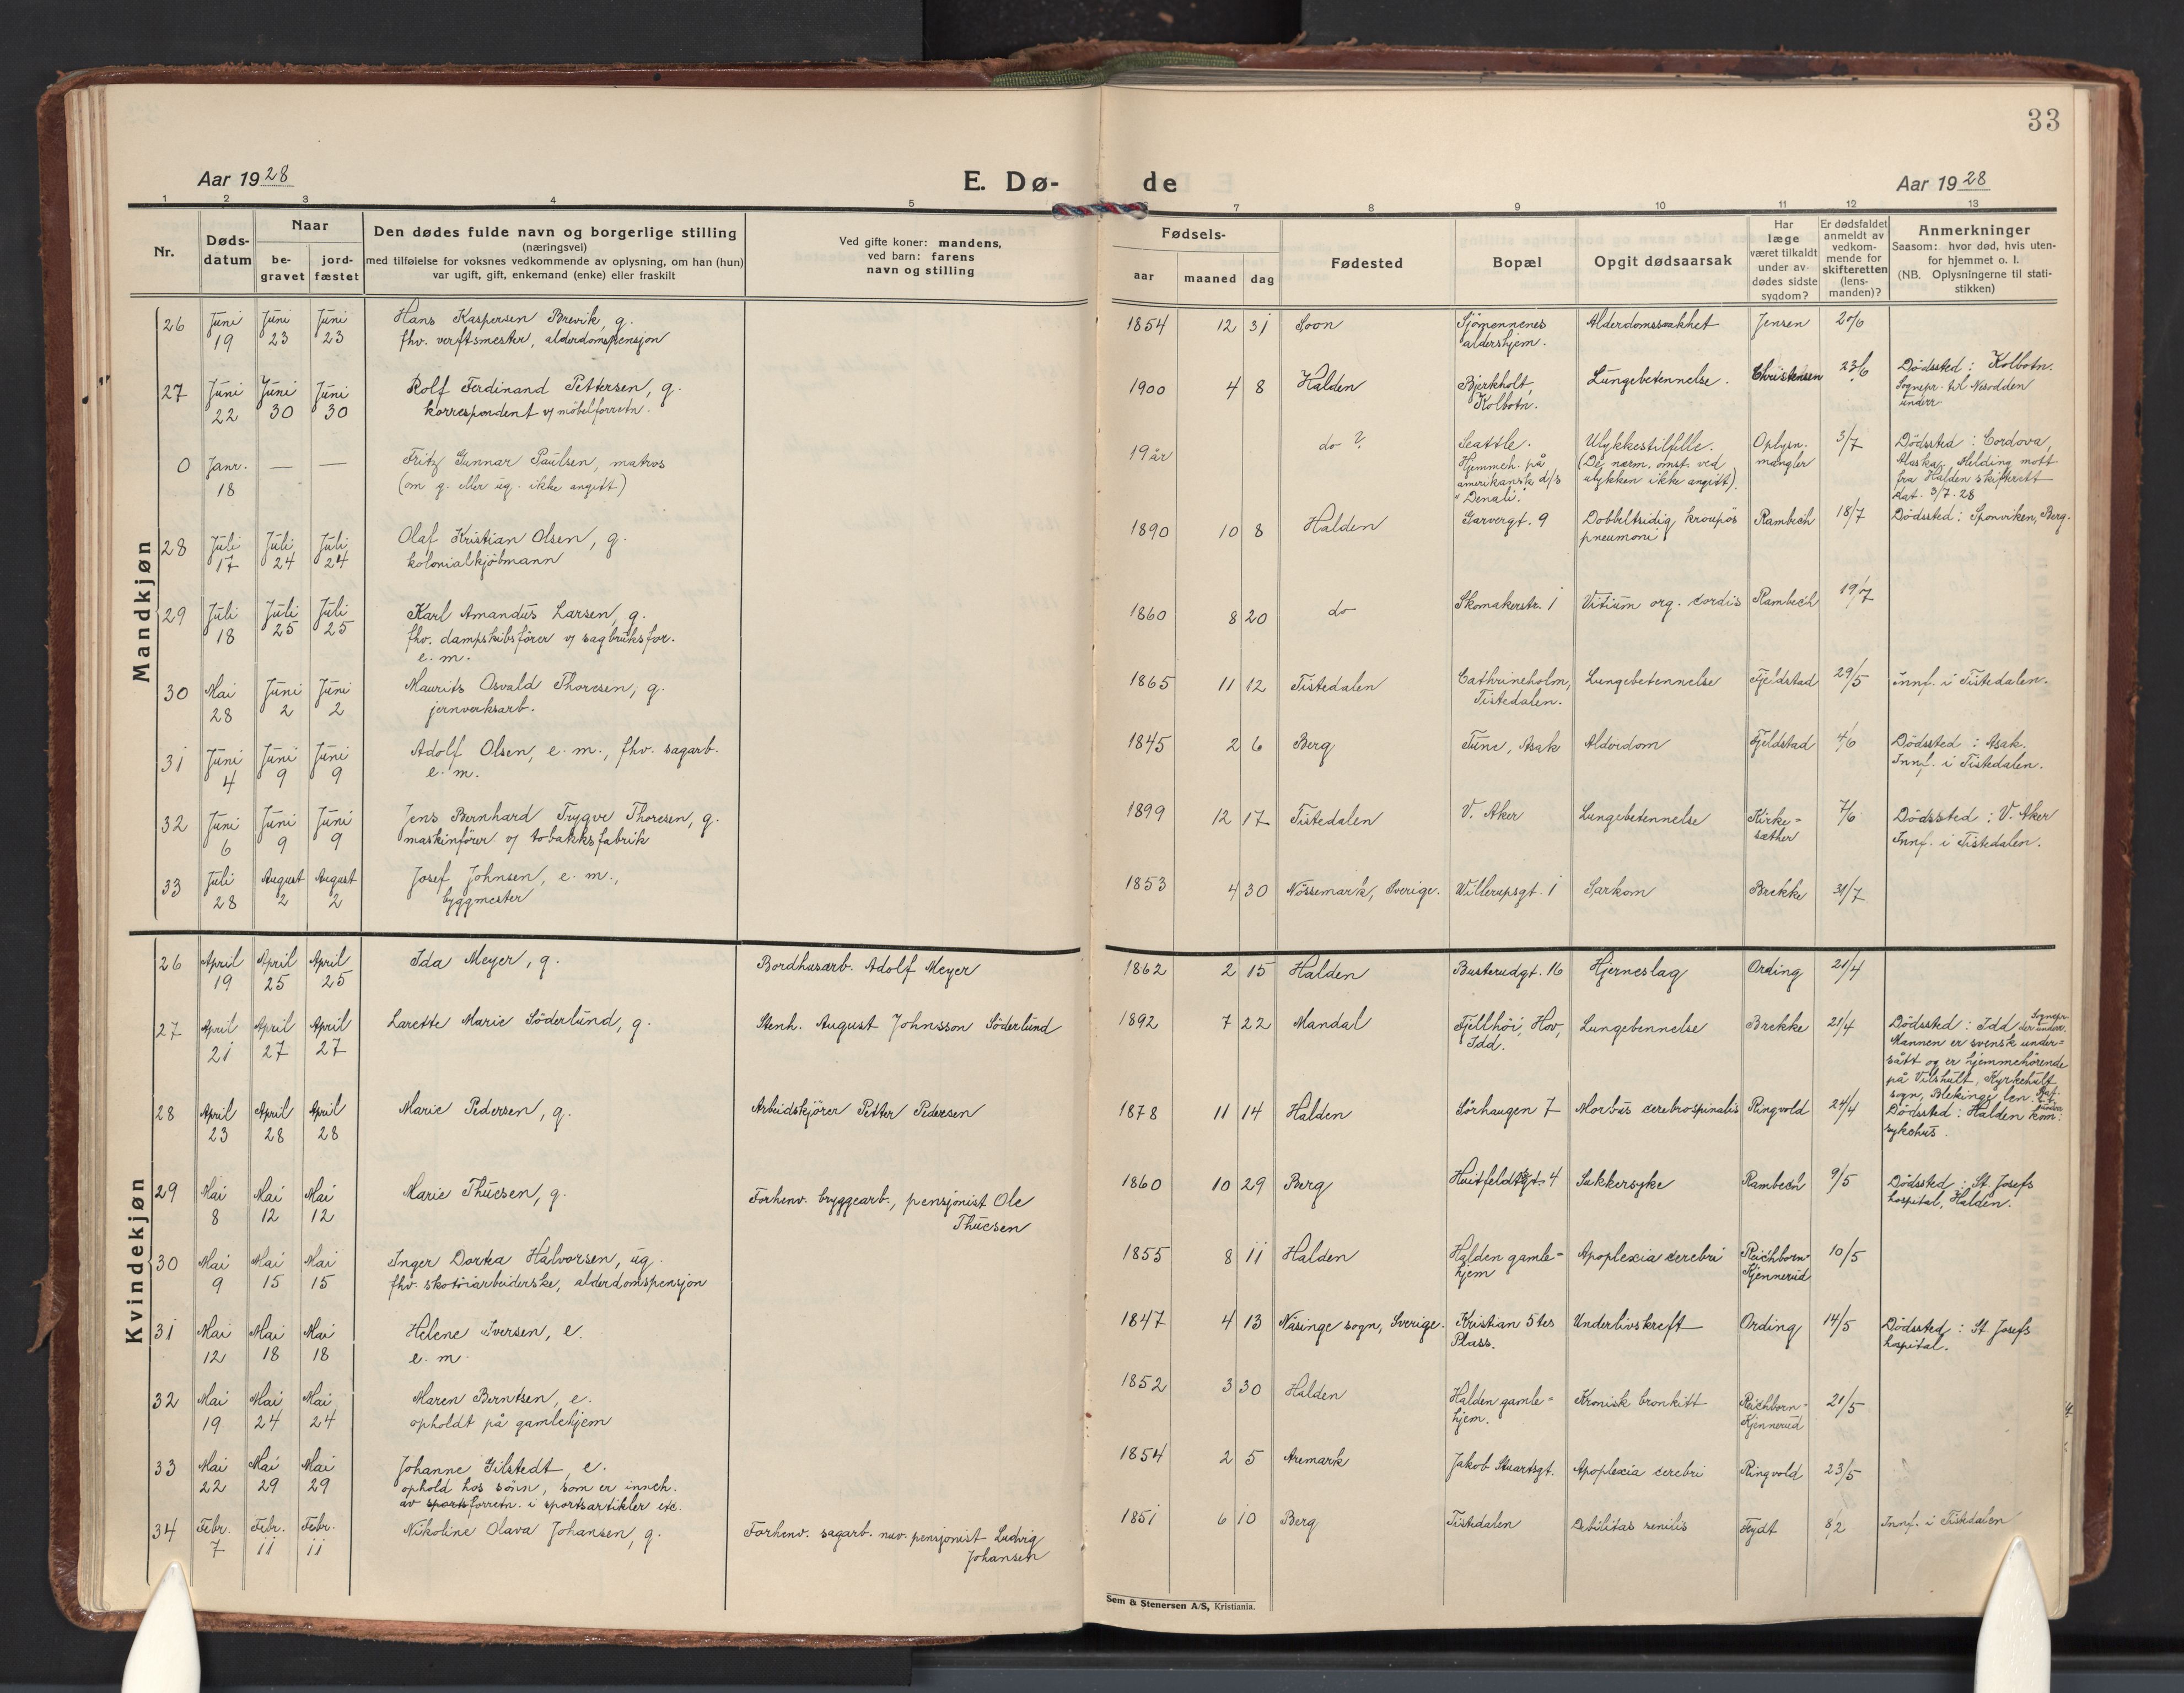 33
Aar 1928
E. Dø-
de
Aar 1928
1 2 3 4 5 6 7 8 9 10 11 12 13
Nr.
Døds-
datum
Naar
be-
gravet
jord-
fæstet
Den dødes fulde navn og borgerlige stilling
(næringsvei)
med tilføielse for voksnes vedkommende av oplysning, om han (hun)
var ugift, gift, enkemand (enke) eller fraskilt
Ved gifte koner: mandens,
ved barn: farens
navn og stilling
Fødsels-
aar
maaned
dag
Fødested
Bopæl
Opgit dødsaarsak
Har
læge
været tilkaldt
under av-
dødes sidste
sygdom?
Er dødsfaldet
anmeldt av
vedkom-
mende for
skifteretten
(lens-
manden)?
Anmerkninger
Saasom: hvor død, hvis uten-
for hjemmet o. l.
(NB. Oplysningerne til stati-
stikken)
Mandkjøn
26 Juni Juni Juni Hans Kaspersen Brevik, g. 1854 12 31 Soon Sjømennenes Alderdomssvakhet Jensen 20/6
19 23 23 fhv. verftsmester, alderdomspensjon aldershjem.
27 Juni Juni Juni Rolf Ferdinand Pettersen, g. 1900 4 8 Halden Bjerkholt, Lungebetennelse. Christensen 23/6 Dødssted: Kolbotn.
22 30 30 korrespondent v/ møbelforretn. Kolbotn. Sognepr. til Nesodden
underr.
0 Janr. — — Fritz Gunnar Paulsen, matros 19 år do ? Seattle. Ulykkestilfelle. Oplysn. 3/7 Dødssted: Cordova,
18 (om g. eller ug. ikke angitt) Hjemmeh. på (De nærm. omst. ved mangler Alaska. Melding mott.
amerikansk d/s ulykken ikke angitt). fra Halden skifterett
"Denali". dat. 3/7.28
28 Juli Juli Juli Olaf Kristian Olsen, g. 1890 10 8 Halden Garvergt. 9 Dobbeltsidig kroupøs Rambech 18/7 Dødssted: Sponviken, Berg.
17 24 24 kolonialkjøbmann pneumoni
29 Juli Juli Juli Karl Amandus Larsen, g. 1860 8 20 do Skomakerstr. 1 Vitium org. cordis Rambech 19/7
18 25 25 fhv. dampskibsfører v/ sagbruksfor.
e. m.
30 Mai Juni Juni Maurits Osvald Thoresen, g. 1865 11 12 Tistedalen Cathrineholm, Lungebetennelse Fjeldstad 29/5 Innf. i Tistedalen.
28 2 2 jernverksarb. Tistedalen.
31 Juni Juni Juni Adolf Olsen, e. m., fhv. sagarb. 1845 2 6 Berg Tune, Asak Alderdom Fjeldstad 4/6 Dødssted: Asak.
4 9 9 e. m. Innf. i Tistedalen.
32 Juni Juni Juni Jens Bernhard Trygve Thoresen, g. 1899 12 17 Tistedalen V. Aker Lungebetennelse Kirke= 7/6 Dødssted: V. Aker
6 9 9 maskinfører v/ tobakksfabrik sæther Innf. i Tistedalen.
33 Juli August August Josef Johnsen, e. m., 1853 4 30 Nössemark, Sverige. Willerupsgt. 1 Sarkom Brekke 31/7
28 2 2 byggmester
Kvindekjøn
26 April April April Ida Meyer, g. Bordhusarb. Adolf Meyer 1862 2 15 Halden Busterudgt. 16 Hjerneslag Ording 21/4
19 25 25
27 April April April Larette Marie Söderlund, g. Stenh. August Johnsson Söderlund 1892 7 22 Mandal Fjellhøi, Hov, Lungebennelse Brekke 21/4 Dødssted: Idd Sognepr. der underr.
21 27 27 Idd. Mannen er svensk under=
sått og er hjemmehørende
på Vilshult, Kyrkehult
sogn, Blekinge len.
28 April April April Marie Pedersen, g. Arbeidskjører Petter Pedersen 1878 11 14 Halden Sørhaugen 7 Morbus cerebrospinalis Ringvold 24/4 Dødssted: Halden kom.
23 28 28 sykehus.
29 Mai Mai Mai Marie Thuesen, g. Forhenv. bryggearb., pensjonist Ole 1860 10 29 Berg Huitfeldtsgt. 4 Sukkersyke Rambech 9/5 Dødssted: St Josefs
8 12 12 Thuesen hospital, Halden.
30 Mai Mai Mai Inger Dortea Halvorsen, ug. 1855 8 11 Halden Halden gamle= Apoplexia cerebri Reichborn- 10/5
9 15 15 fhv. skotøiarbeiderske, alderdomspensjon hjem Kjennerud
31 Mai Mai Mai Helene Iversen, e. 1847 4 13 Näsinge sogn, Sverige. Kristian 5tes Underlivskreft Ording 14/5 Dødssted: St Josefs
12 18 18 e. m. Plass. hospital.
32 Mai Mai Mai Maren Berntsen, e. 1852 3 30 Halden Halden gamle= Kronisk bronkitt Reichborn- 21/5
19 24 24 opholdt på gamlehjem hjem. Kjennerud
33 Mai Mai Mai Johanne Gilstedt, e. 1854 2 5 Aremark Jakob Stuartsgt. Apoplexia cerebri Ringvold 23/5
22 29 29 ophold hos sønn, som er inneh.
av sportsforretn. i sportsartikler etc.
34 Febr. Febr. Febr. Nikoline Olava Johansen, g. Forhenv. sagarb. nuv. pensjonist Ludvig 1851 6 10 Berg Tistedalen Debilitas senilis Frydt 8/2 Innf. i Tistedalen
7 11 11 Johansen
Sem & Stenersen A/S, Kristiania.